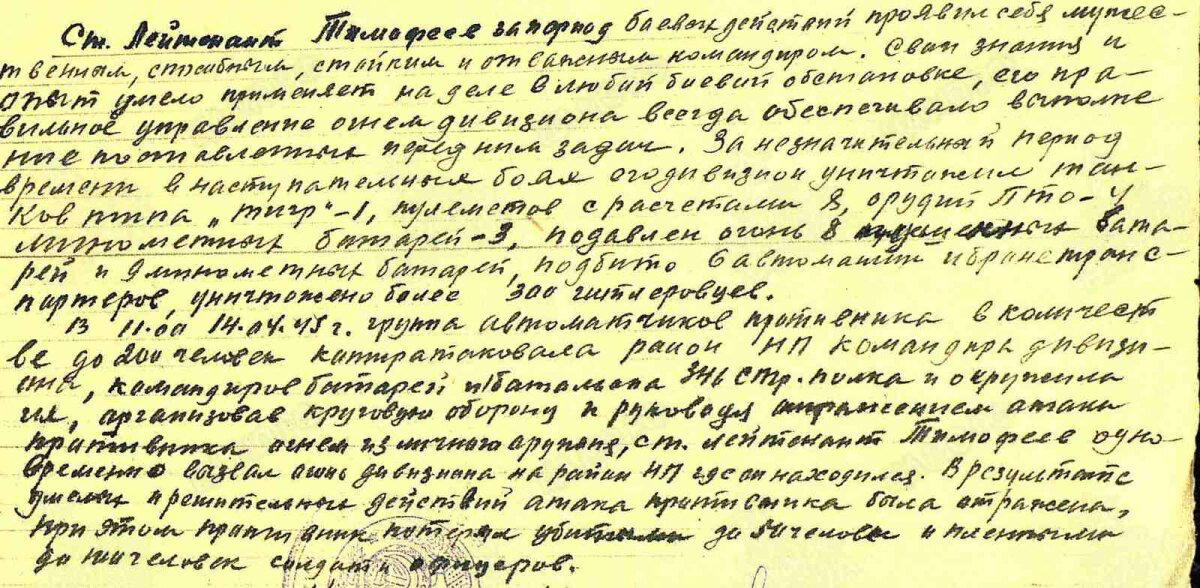 Ст. Лейтенант Тимофеев за период боевых действий проявил себя мужес-
твенным, способным, стойким и отважным командиром. Свои знания и
опыт умело применяет на деле в любой боевой обстановке, его пра-
вильное управление огнем дивизиона всегда обеспечивало выполне
ние поставленных перед ним задач. За незначительный период
времени в наступательных боях его дивизион уничтожил тан-
ков типа „тигр"-1, пулеметов с расчетами 8, орудий ПТО-4
минометных батарей-3, подавлен огонь 8 бата-
рей и 9 минометных батарей, подбито 6 автомашин и бронетранс-
портеров, уничтожено более 300 гитлеровцев.
В 11.00 14.04.45 г. группа автоматчиков противника в количест
ве до 200 человек контратаковала район НП командира дивизи-
она, командиров батарей и батальона стр. полка и окружила
их, организовав круговую оборону и руководя отражением атаки
противника огнем из личного оружия, ст. лейтенант Тимофеев одно-
временно вызвал огонь дивизиона на район НП где он находился. В результате
умелых и решительных действий атака противника была отражена,
при этом противник потерял убитыми до 50 человек и пленными
до человек солдат и офицеров.